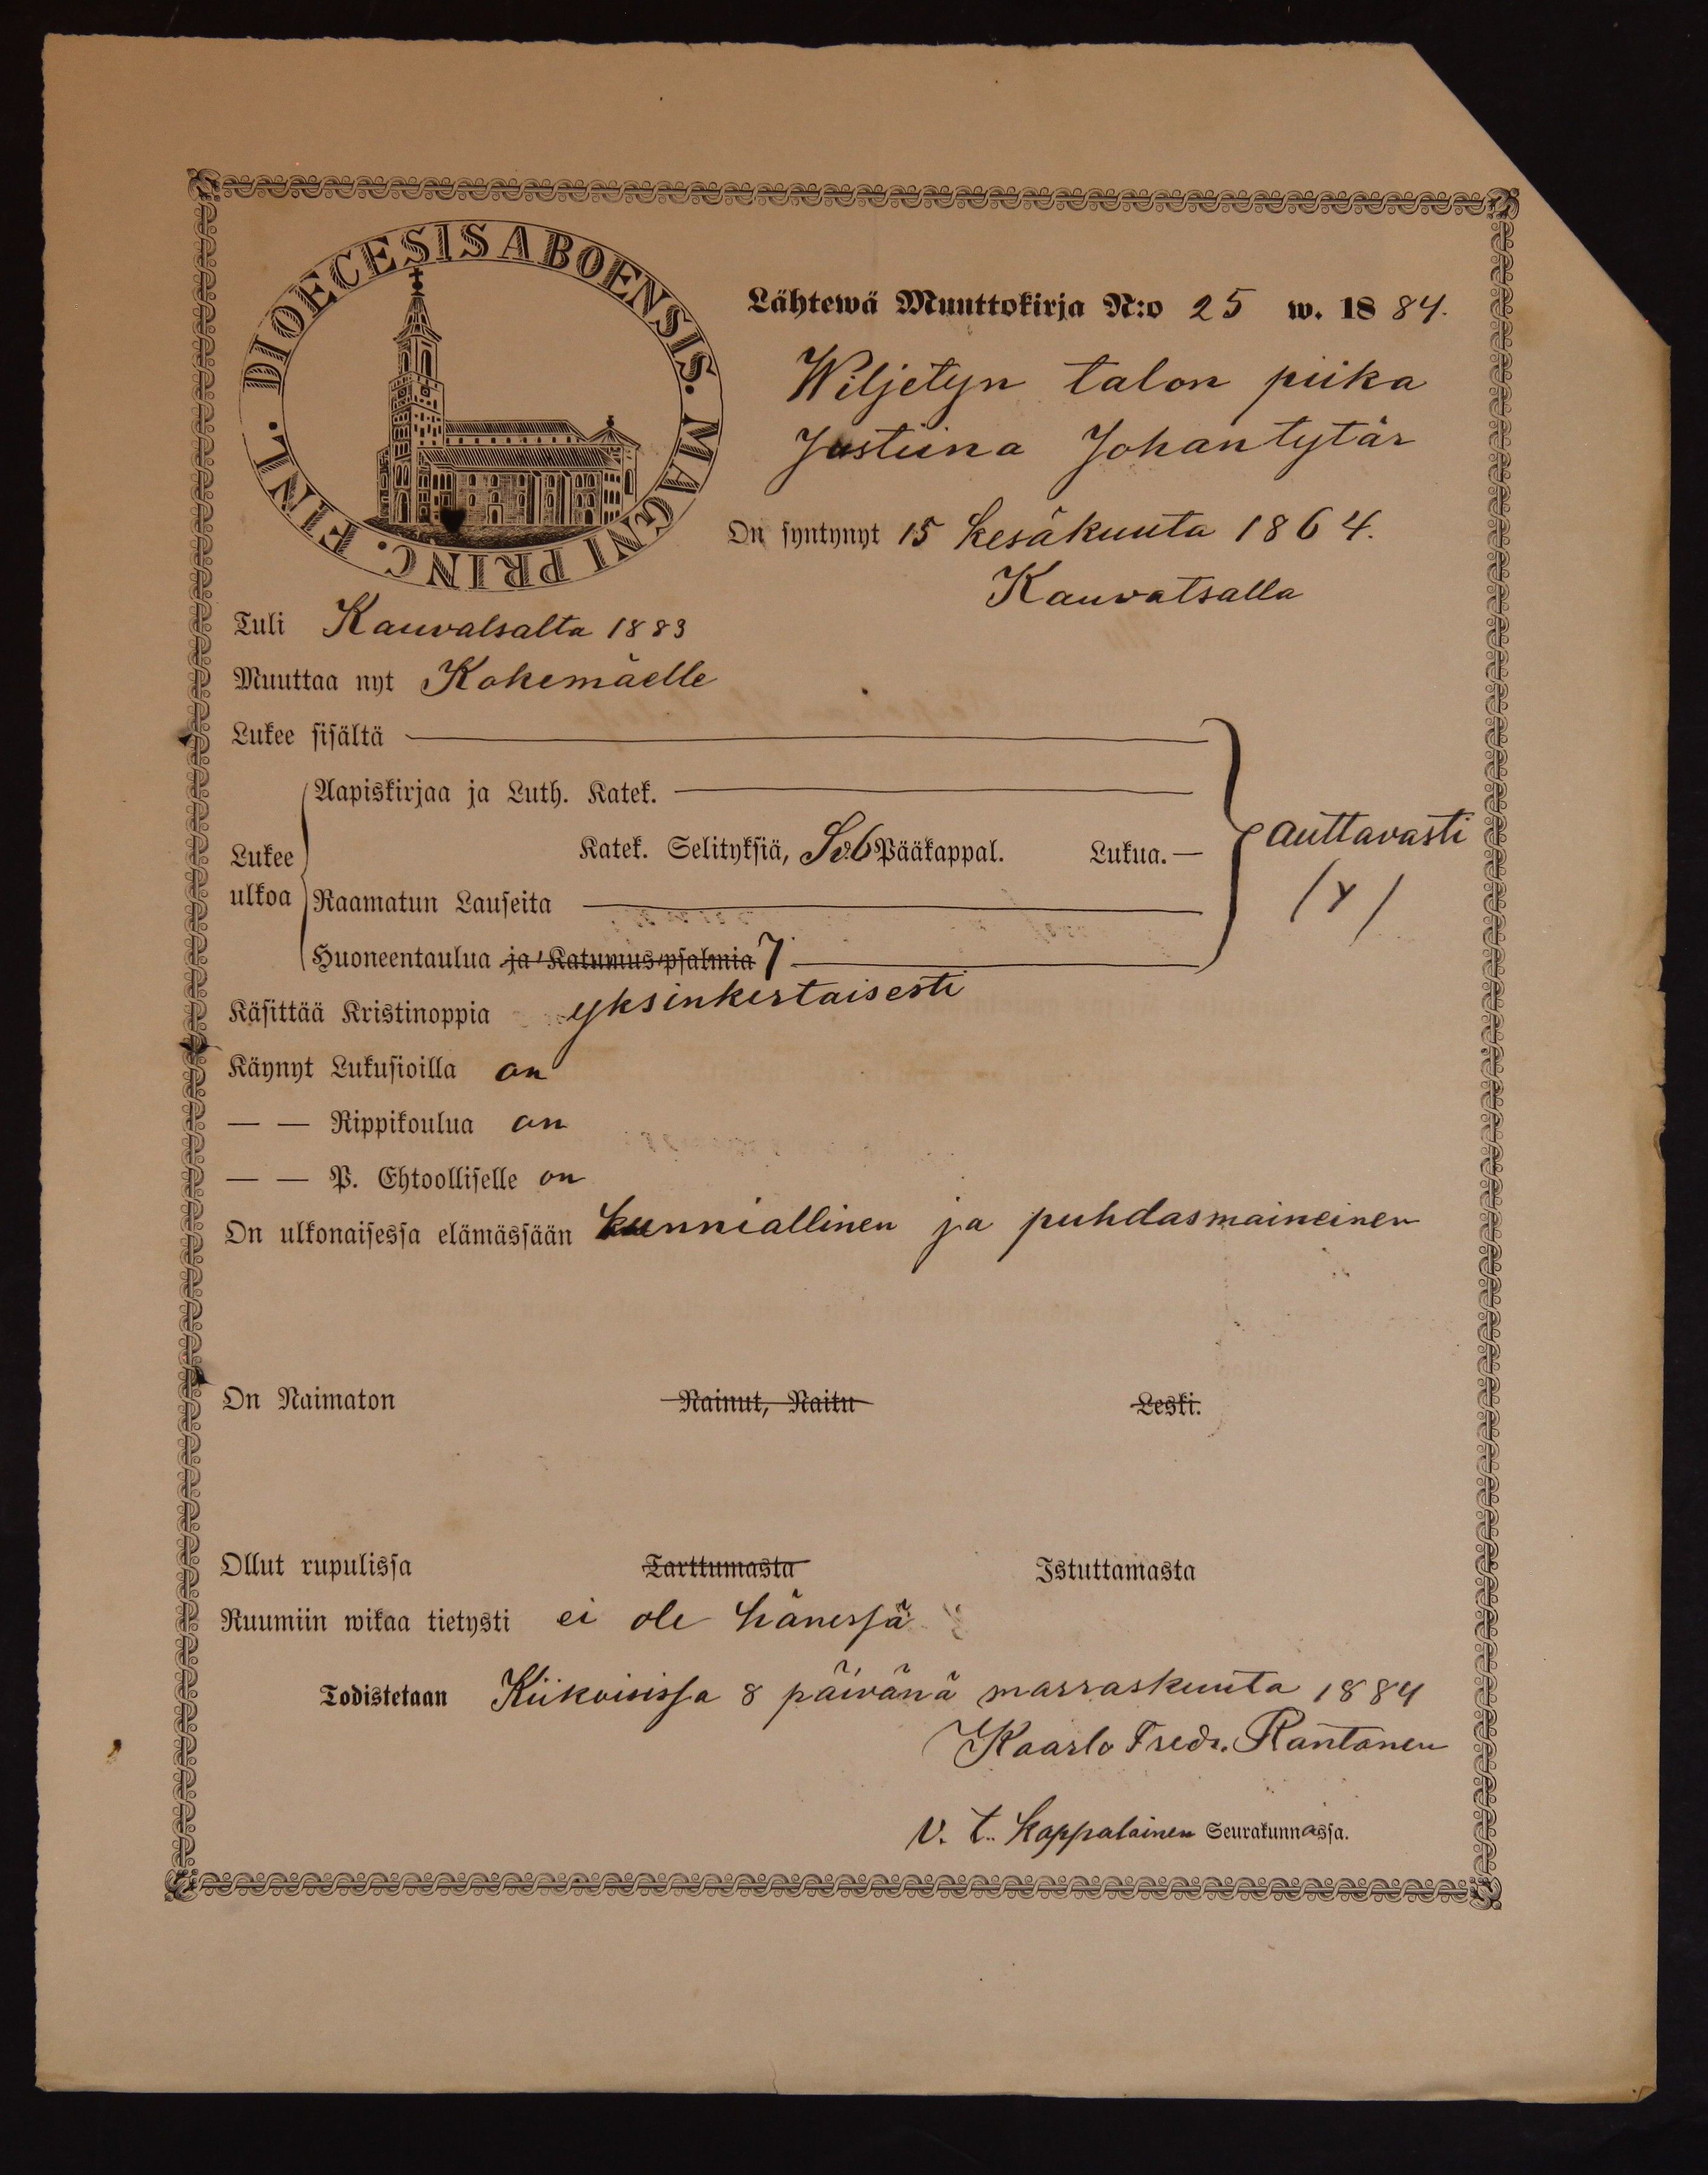 DIOECESIS ABOENSIS. MAGNI PRINC. FINL.
Lähtewä Muuttokirja N:o 25 w. 1884.
Wiljetyn talon piika
Justiina Johantytär
On syntynyt 15 kesäkuuta 1864.
Kauvatsalla
Tuli Kauvatsalta 1883
Muuttaa nyt Kokemäelle
Lukee sisältä
Aapiskirjaa ja Luth. Katek.
Katek. Selityksiä, Sv6 Pääkappal. Lukua. —
auttavasti
Lukee
ulkoa
Raamatun Lauseita
/Y/
Huoneentaulua ja Katumus-psalmia 7
Käsittää Kristinoppia yksinkertaisesti
Käynyt Lukusioilla on
— — Rippikoulua on
— — P. Ehtoolliselle on
On ulkonaisessa elämässään kunniallinen ja puhdasmaineinen
On Naimaton Nainut, Naitu Leski.
Ollut rupulissa Tarttumasta Istuttamasta
Ruumiin wikaa tietysti ei ole hänessä
Todistetaan Kiikoisissa 8 päivänä marraskuuta 1884
Kaarlo Fredr. Rantanen
v. t. kappalainen Seurakunnassa.